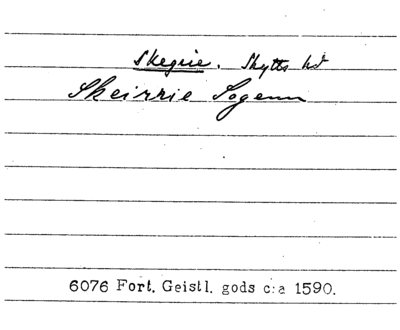 Skegrie. Skytts hd
Skeirrie Sogenn
6076 Fort. Geistl. gods c:a 1590.